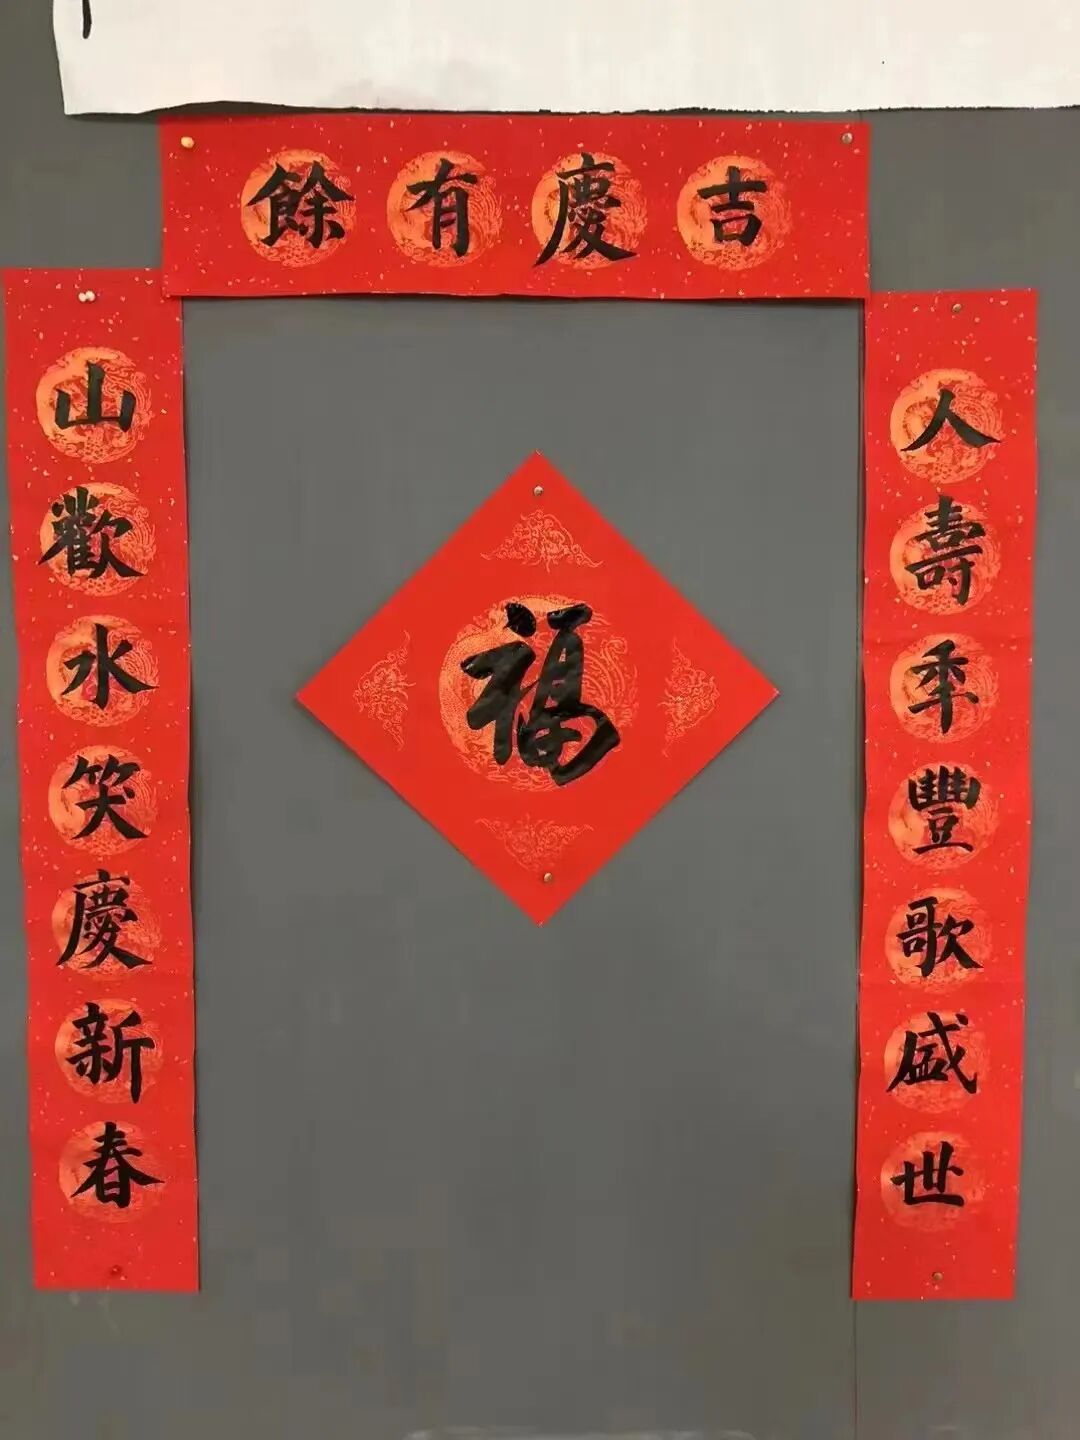 吉慶有餘
人壽年豐歌盛世
山歡水笑慶新春
福